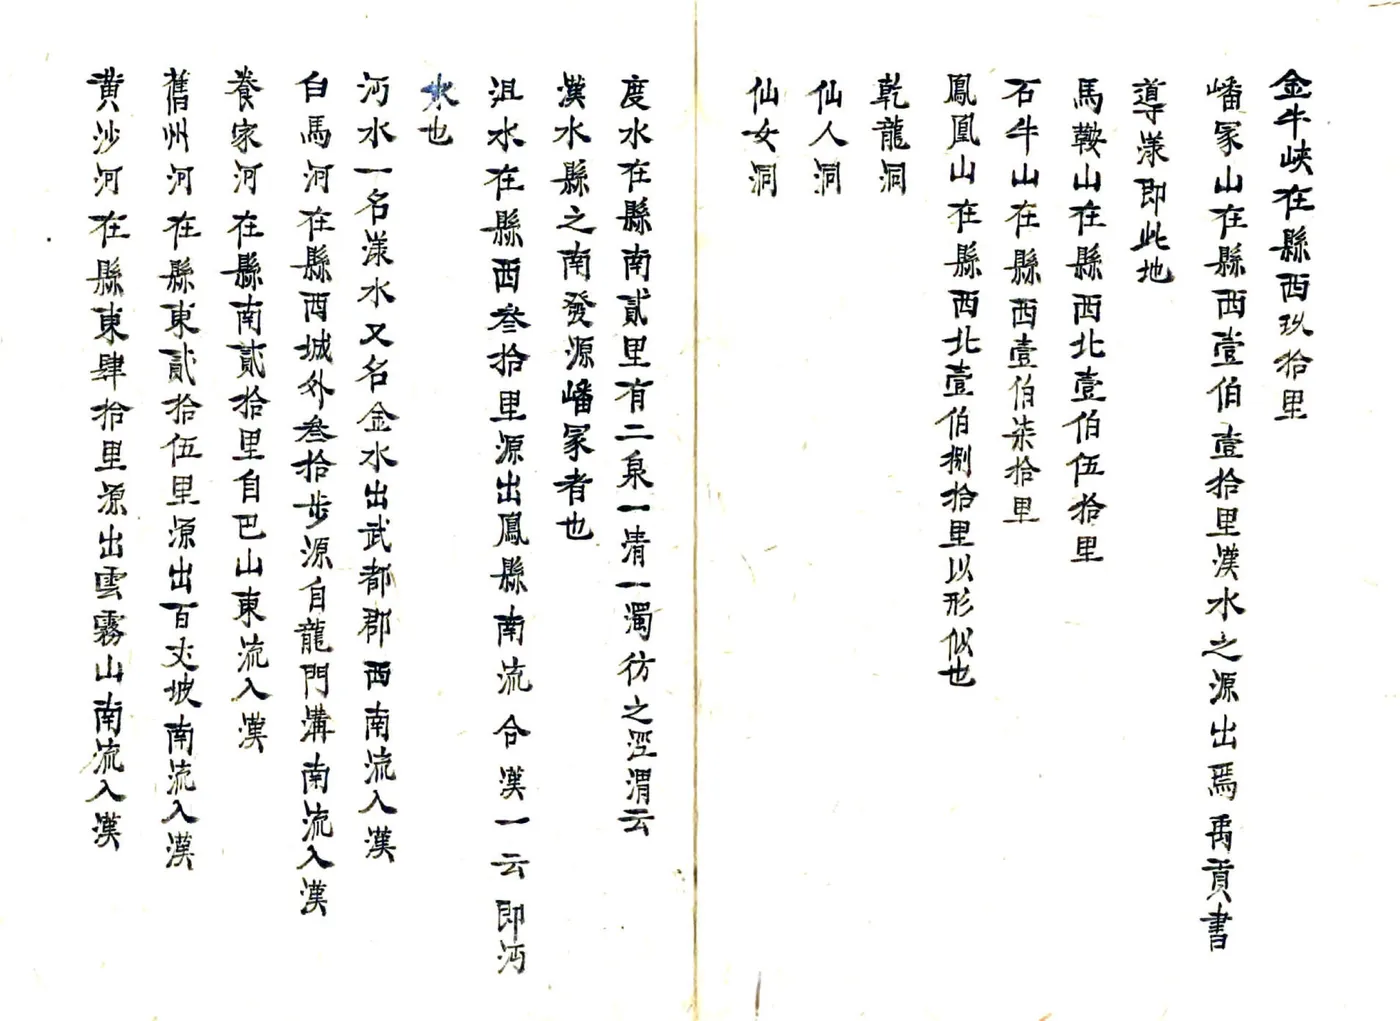 金牛峽在縣西玖拾里
嶓冢山在縣西壹伯壹拾里漢水之源出焉禹貢書
導漾即此地
馬鞍山在縣西北壹伯伍拾里
石牛山在縣西壹伯柒拾里
鳳凰山在縣西北壹伯捌拾里以形似也
乾龍洞
仙人洞
仙女洞
度水在縣南貳里有二泉一清一濁彷之涇渭云
漢水縣之南發源嶓冢者也
沮水在縣西叁拾里源出鳳縣南流合漢一云即沔
水也
沔水一名漾水又名金水出武都郡西南流入漢
白馬河在縣西城外叁拾步源自龍門溝南流入漢
養家河在縣南貳拾里自巴山東流入漢
舊州河在縣東貳拾伍里源出百丈坡南流入漢
黄沙河在縣東肆拾里源出雲霧山南流入漢